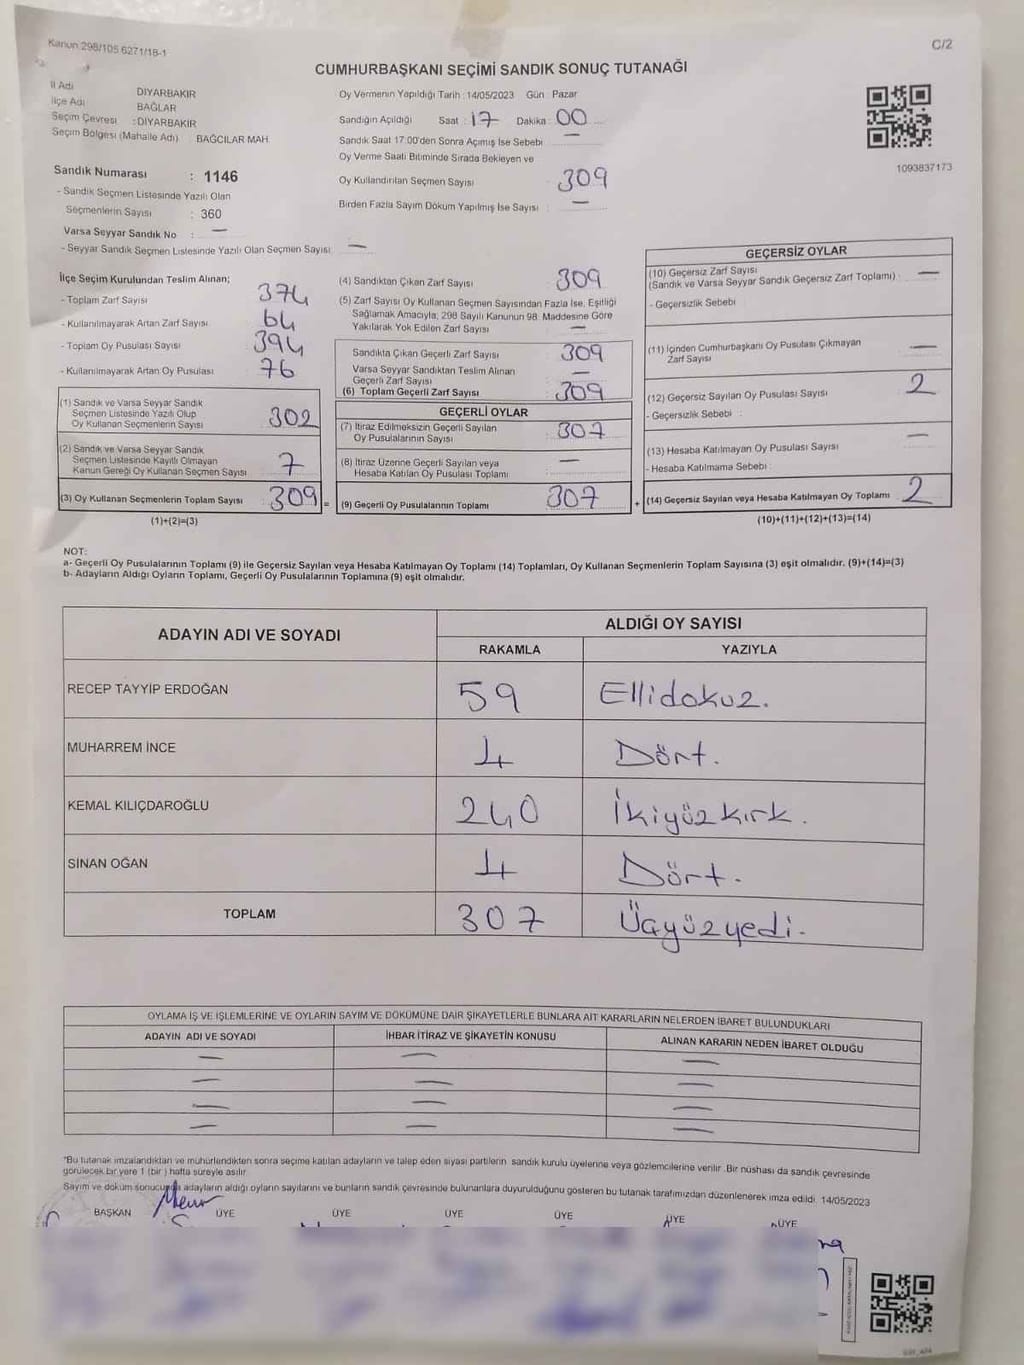 Kanun 298/105 6271/18-1
C/2
CUMHURBAŞKANI SEÇİMİ SANDIK SONUÇ TUTANAĞI
İl Adı DİYARBAKIR
İlçe Adı BAĞLAR
Seçim Çevresi : DİYARBAKIR
Seçim Bölgesi (Mahalle Adı) BAĞCILAR MAH.
Sandık Numarası : 1146
- Sandık Seçmen Listesinde Yazılı Olan
Seçmenlerin Sayısı : 360
Varsa Seyyar Sandık No : —
- Seyyar Sandık Seçmen Listesinde Yazılı Olan Seçmen Sayısı: —
Oy Vermenin Yapıldığı Tarih : 14/05/2023 Gün : Pazar
Sandığın Açıldığı Saat : 17 Dakika : 00
Sandık Saat 17:00'den Sonra Açımış İse Sebebi —
Oy Verme Saati Bitiminde Sırada Bekleyen ve
Oy Kullandırılan Seçmen Sayısı 309
Birden Fazla Sayım Döküm Yapılmış İse Sayısı : —
1093837173
İlçe Seçim Kurulundan Teslim Alınan;
- Toplam Zarf Sayısı 374
- Kullanılmayarak Artan Zarf Sayısı 64
- Toplam Oy Pusulası Sayısı 394
- Kullanılmayarak Artan Oy Pusulası 76
(1) Sandık ve Varsa Seyyar Sandık
Seçmen Listesinde Yazılı Olup
Oy Kullanan Seçmenlerin Sayısı 302
(2) Sandık ve Varsa Seyyar Sandık
Seçmen Listesinde Kayıtlı Olmayan
Kanun Gereği Oy Kullanan Seçmen Sayısı 7
(3) Oy Kullanan Seçmenlerin Toplam Sayısı 309 =
(1)+(2)=(3)
(4) Sandıktan Çıkan Zarf Sayısı 309
(5) Zarf Sayısı Oy Kullanan Seçmen Sayısından Fazla İse, Eşitliği
Sağlamak Amacıyla; 298 Sayılı Kanunun 98. Maddesine Göre
Yakılarak Yok Edilen Zarf Sayısı —
Sandıkta Çıkan Geçerli Zarf Sayısı 309
Varsa Seyyar Sandıktan Teslim Alınan
Geçerli Zarf Sayısı —
(6) Toplam Geçerli Zarf Sayısı 309
GEÇERLİ OYLAR
(7) İtiraz Edilmeksizin Geçerli Sayılan
Oy Pusulalarının Sayısı 307
(8) İtiraz Üzerine Geçerli Sayılan veya
Hesaba Katılan Oy Pusulası Toplamı —
(9) Geçerli Oy Pusulalarının Toplamı 307 +
GEÇERSİZ OYLAR
(10) Geçersiz Zarf Sayısı
(Sandık ve Varsa Seyyar Sandık Geçersiz Zarf Toplamı) : —
- Geçersizlik Sebebi :
(11) İçinden Cumhurbaşkanı Oy Pusulası Çıkmayan
Zarf Sayısı —
(12) Geçersiz Sayılan Oy Pusulası Sayısı 2
- Geçersizlik Sebebi :
(13) Hesaba Katılmayan Oy Pusulası Sayısı —
- Hesaba Katılmama Sebebi :
(14) Geçersiz Sayılan veya Hesaba Katılmayan Oy Toplamı 2
(10)+(11)+(12)+(13)=(14)
NOT:
a- Geçerli Oy Pusulalarının Toplamı (9) ile Geçersiz Sayılan veya Hesaba Katılmayan Oy Toplamı (14) Toplamları, Oy Kullanan Seçmenlerin Toplam Sayısına (3) eşit olmalıdır. (9)+(14)=(3)
b- Adayların Aldığı Oyların Toplamı, Geçerli Oy Pusulalarının Toplamına (9) eşit olmalıdır.
ADAYIN ADI VE SOYADI ALDIĞI OY SAYISI
RAKAMLA YAZIYLA
RECEP TAYYİP ERDOĞAN 59 Ellidokuz.
MUHARREM İNCE 4 Dört.
KEMAL KILIÇDAROĞLU 240 İkiyüzkırk.
SİNAN OĞAN 4 Dört.
TOPLAM 307 Üçyüzyedi.
OYLAMA İŞ VE İŞLEMLERİNE VE OYLARIN SAYIM VE DÖKÜMÜNE DAİR ŞİKAYETLERLE BUNLARA AİT KARARLARIN NELERDEN İBARET BULUNDUKLARI
ADAYIN ADI VE SOYADI İHBAR İTİRAZ VE ŞİKAYETİN KONUSU ALINAN KARARIN NEDEN İBARET OLDUĞU
— — —
— — —
— — —
— — —
"Bu tutanak imzalandıktan ve mühürlendikten sonra seçime katılan adayların ve talep eden siyasi partilerin sandık kurulu üyelerine veya gözlemcilerine verilir. Bir nüshası da sandık çevresinde
görülecek bir yere 1 (bir ) hafta süreyle asılır
Sayım ve döküm sonucunda adayların aldığı oyların sayılarını ve bunların sandık çevresinde bulunanlara duyurulduğunu gösteren bu tutanak tarafımızdan düzenlenerek imza edildi. 14/05/2023
BAŞKAN ÜYE ÜYE ÜYE ÜYE ÜYE ÜYE